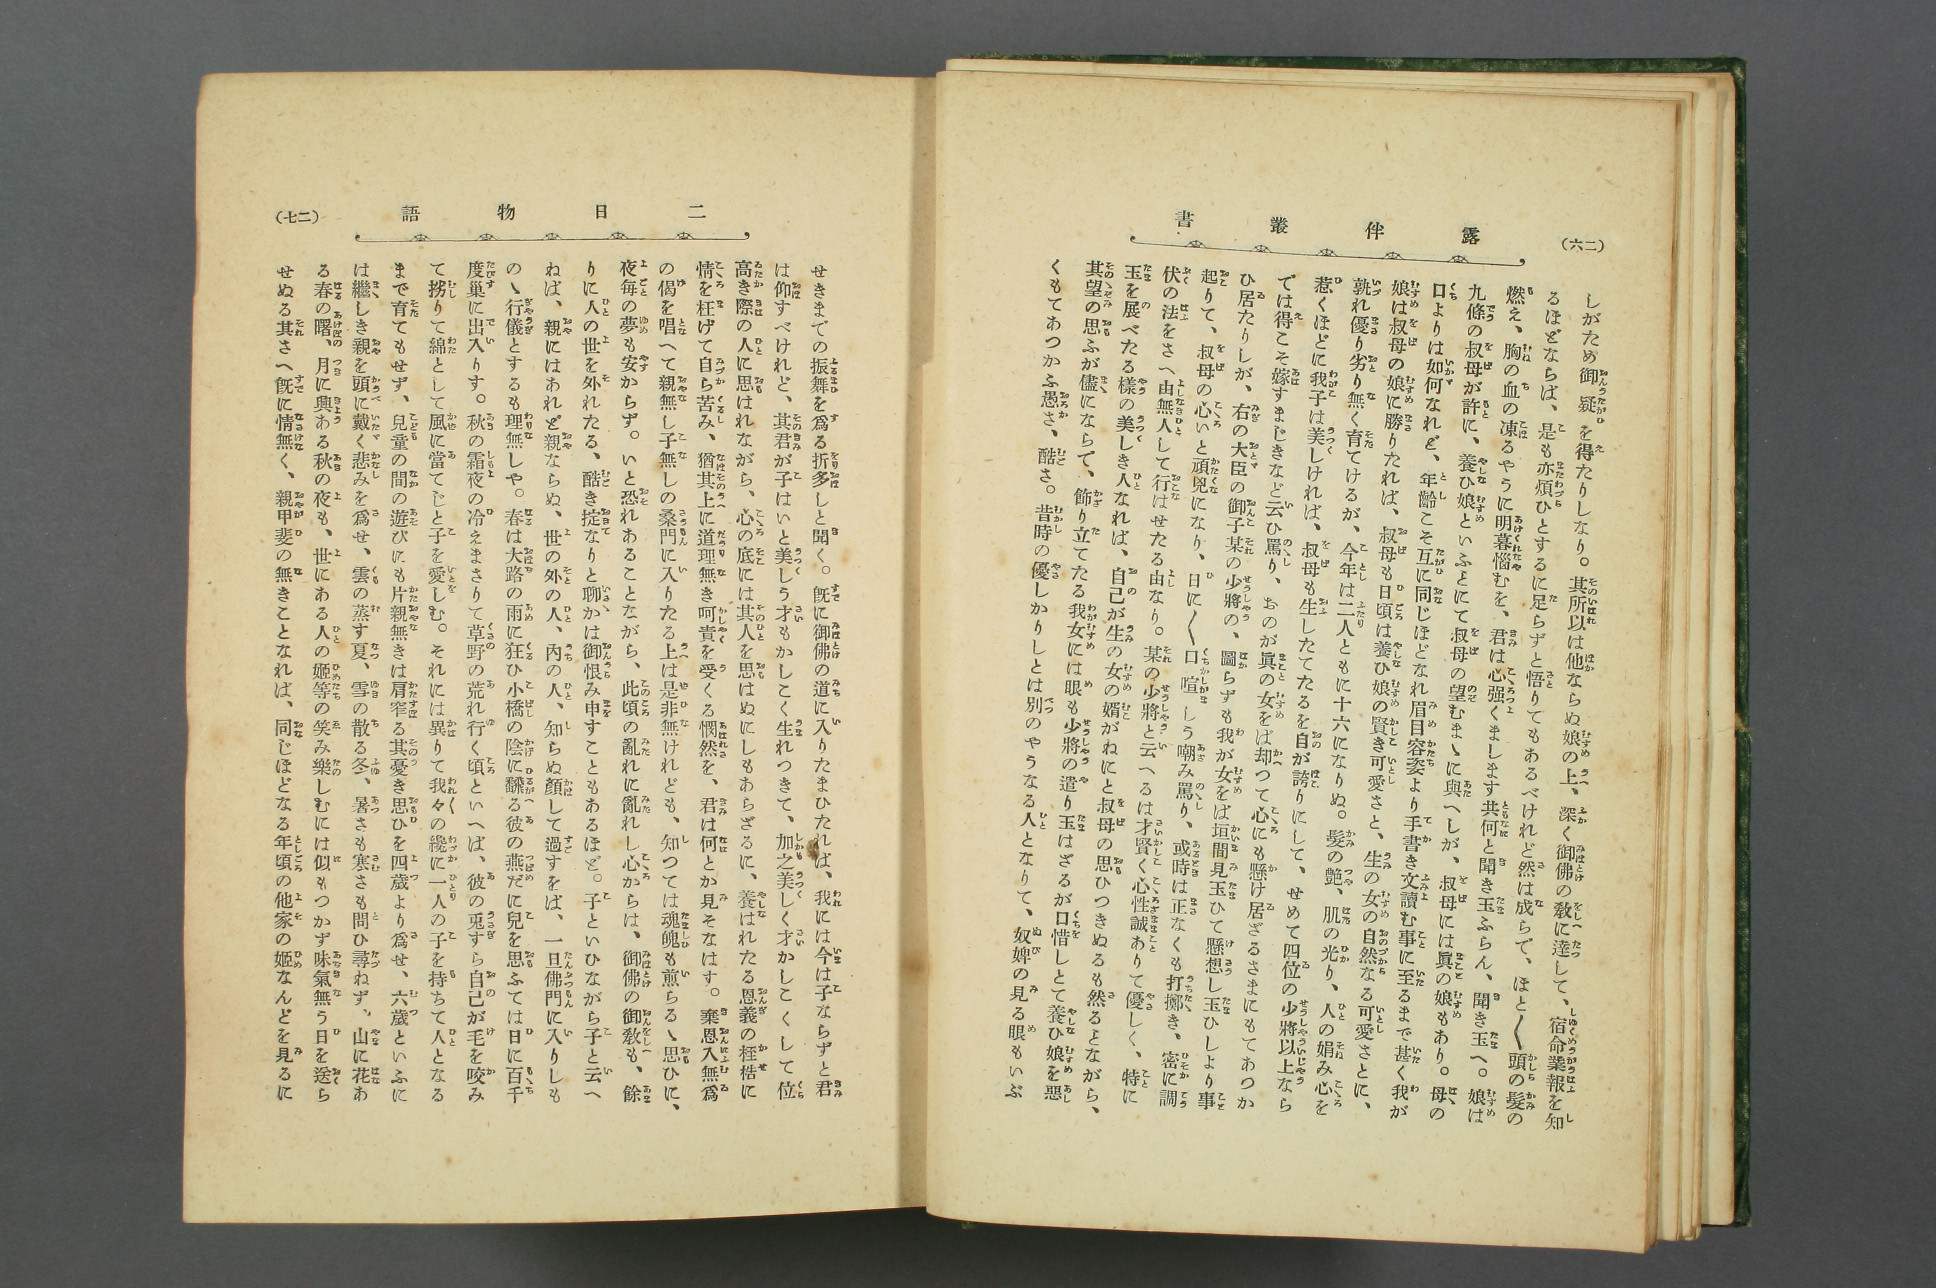 (二六)
露伴叢書
しがため御疑を得たりしなり。其所以は他ならぬ娘の上、深く御佛の敎に達して、宿命業報を知
るほどならば、是も亦煩ひとするに足らずと悟りてもあるべけれど然は成らで、ほと〱頭の髮の
燃え、胸の血の凍るやうに明暮惱むを、君は心强くまします共何と聞き玉ふらん、聞き玉へ。娘は
九條の叔母が許に、養ひ娘といふとにて叔母の望むまヽに與へしが、叔母には眞の娘もあり。母の
口よりは如何なれど、年齡こそ互に同じほどなれ眉目容姿より手書き文讀む事に至るまで甚く我が
娘は叔母の娘に勝りたれば、叔母も日頃は養ひ娘の賢き可愛さと、生の女の自然なる可愛さとに、
孰れ優り劣り無く育てけるが、今年は二人ともに十六になりぬ。髮の艷、肌の光り、人の娟み心を
惹くほどに我子は美しければ、叔母も生したてたるを自が誇りにして、せめて四位の少將以上なら
では得こそ嫁すまじきなど云ひ罵り、おのが眞の女をば却つて心にも懸け居ざるさまにもてあつか
ひ居たりしが、右の大臣の御子某の少將の、圖らずも我が女をば垣間見玉ひて懸想し玉ひしより事
起りて、叔母の心いと頑兇になり、日に〱口喧しう嘲み罵り、或時は正なくも打擲き、密に調
伏の法をさへ由無人して行はせたる由なり。某の少將と云へるは才賢く心性誠ありて優しく、特に
玉を展べたる樣の美しき人なれば、自己が生の女の婿がねにと叔母の思ひつきぬるも然るとながら、
其望の思ふが儘にならで、飾り立てたる我女には眼も少將の遣り玉はざるが口惜しとて養ひ娘を惡
くもてあつかふ愚さ、酷さ。昔時の優しかりしとは別のやうなる人となりて、奴婢の見る眼もいぶ
二日物語
(二七)
せきまでの振舞を爲る折多しと聞く。旣に御佛の道に入りたまひたれば、我には今は子ならずと君
は仰すべけれど、其君が子はいと美しう才もかしこく生れつきて、加之美しく才かしこくして位
高き際の人に思はれながら、心の底には其人を思はぬにしもあらざるに、養はれたる恩義の桎梏に
情を枉げて自ら苦み、猶其上に道理無き呵責を受くる憫然を、君は何とか見そなはす。棄恩入無爲
の偈を唱へて親無し子無しの桑門に入りたる上は是非無けれども、知つては魂魄も煎らるヽ思ひに、
夜每の夢も安からず。いと恐れあることながら、此頃の亂れに亂れし心からは、御佛の御敎も、餘
りに人の世を外れたる、酷き掟なりと聊かは御恨み申すこともあるほど。子といひながら子と云へ
ねば、親にはあれど親ならぬ、世の外の人、內の人、知らぬ顏して過すをば、一旦佛門に入りしも
のヽ行儀とするも理無しや。春は大路の雨に狂ひ小橋の陰に飜る彼の燕だに兒を思ふては日に百千
度巢に出入りす。秋の霜夜の冷えまさりて草野の荒れ行く頃といへば、彼の兎すら自己が毛を咬み
て挘りて綿として風に當てじと子を愛しむ。それには異りて我々の纔に一人の子を持ちて人となる
まで育てもせず、兒童の間の遊びにも片親無きは肩窄る其憂き思ひを四歲より爲せ、六歲といふに
は繼しき親を頭に戴く悲みを爲せ、雲の蒸す夏、雪の散る冬、暑さも寒さも問ひ尋ねず、山に花あ
る春の曙、月に興ある秋の夜も、世にある人の姬等の笑み樂しむには似もつかず味氣無う日を送ら
せぬる其さへ旣に情無く、親甲斐の無きことなれば、同じほどなる年頃の他家の姬なんどを見るに